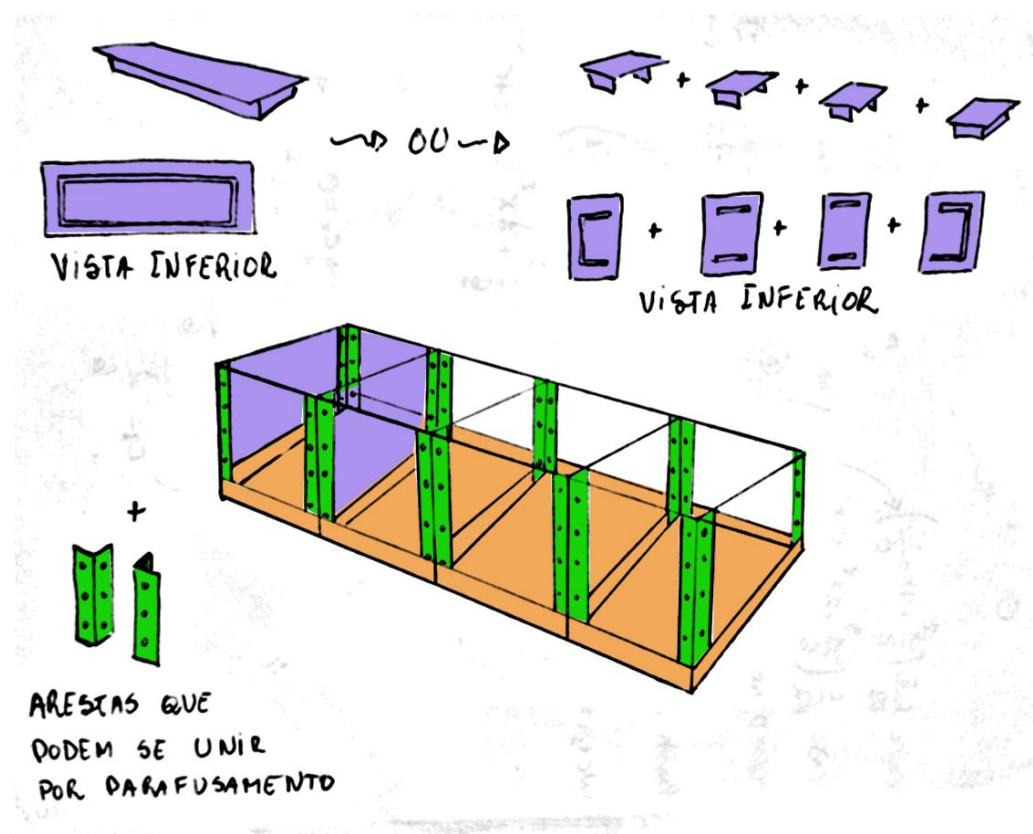 OU
VISTA INFERIOR
VISTA INFERIOR
ARESTAS QUE
PODEM SE UNIR
POR PARAFUSAMENTO